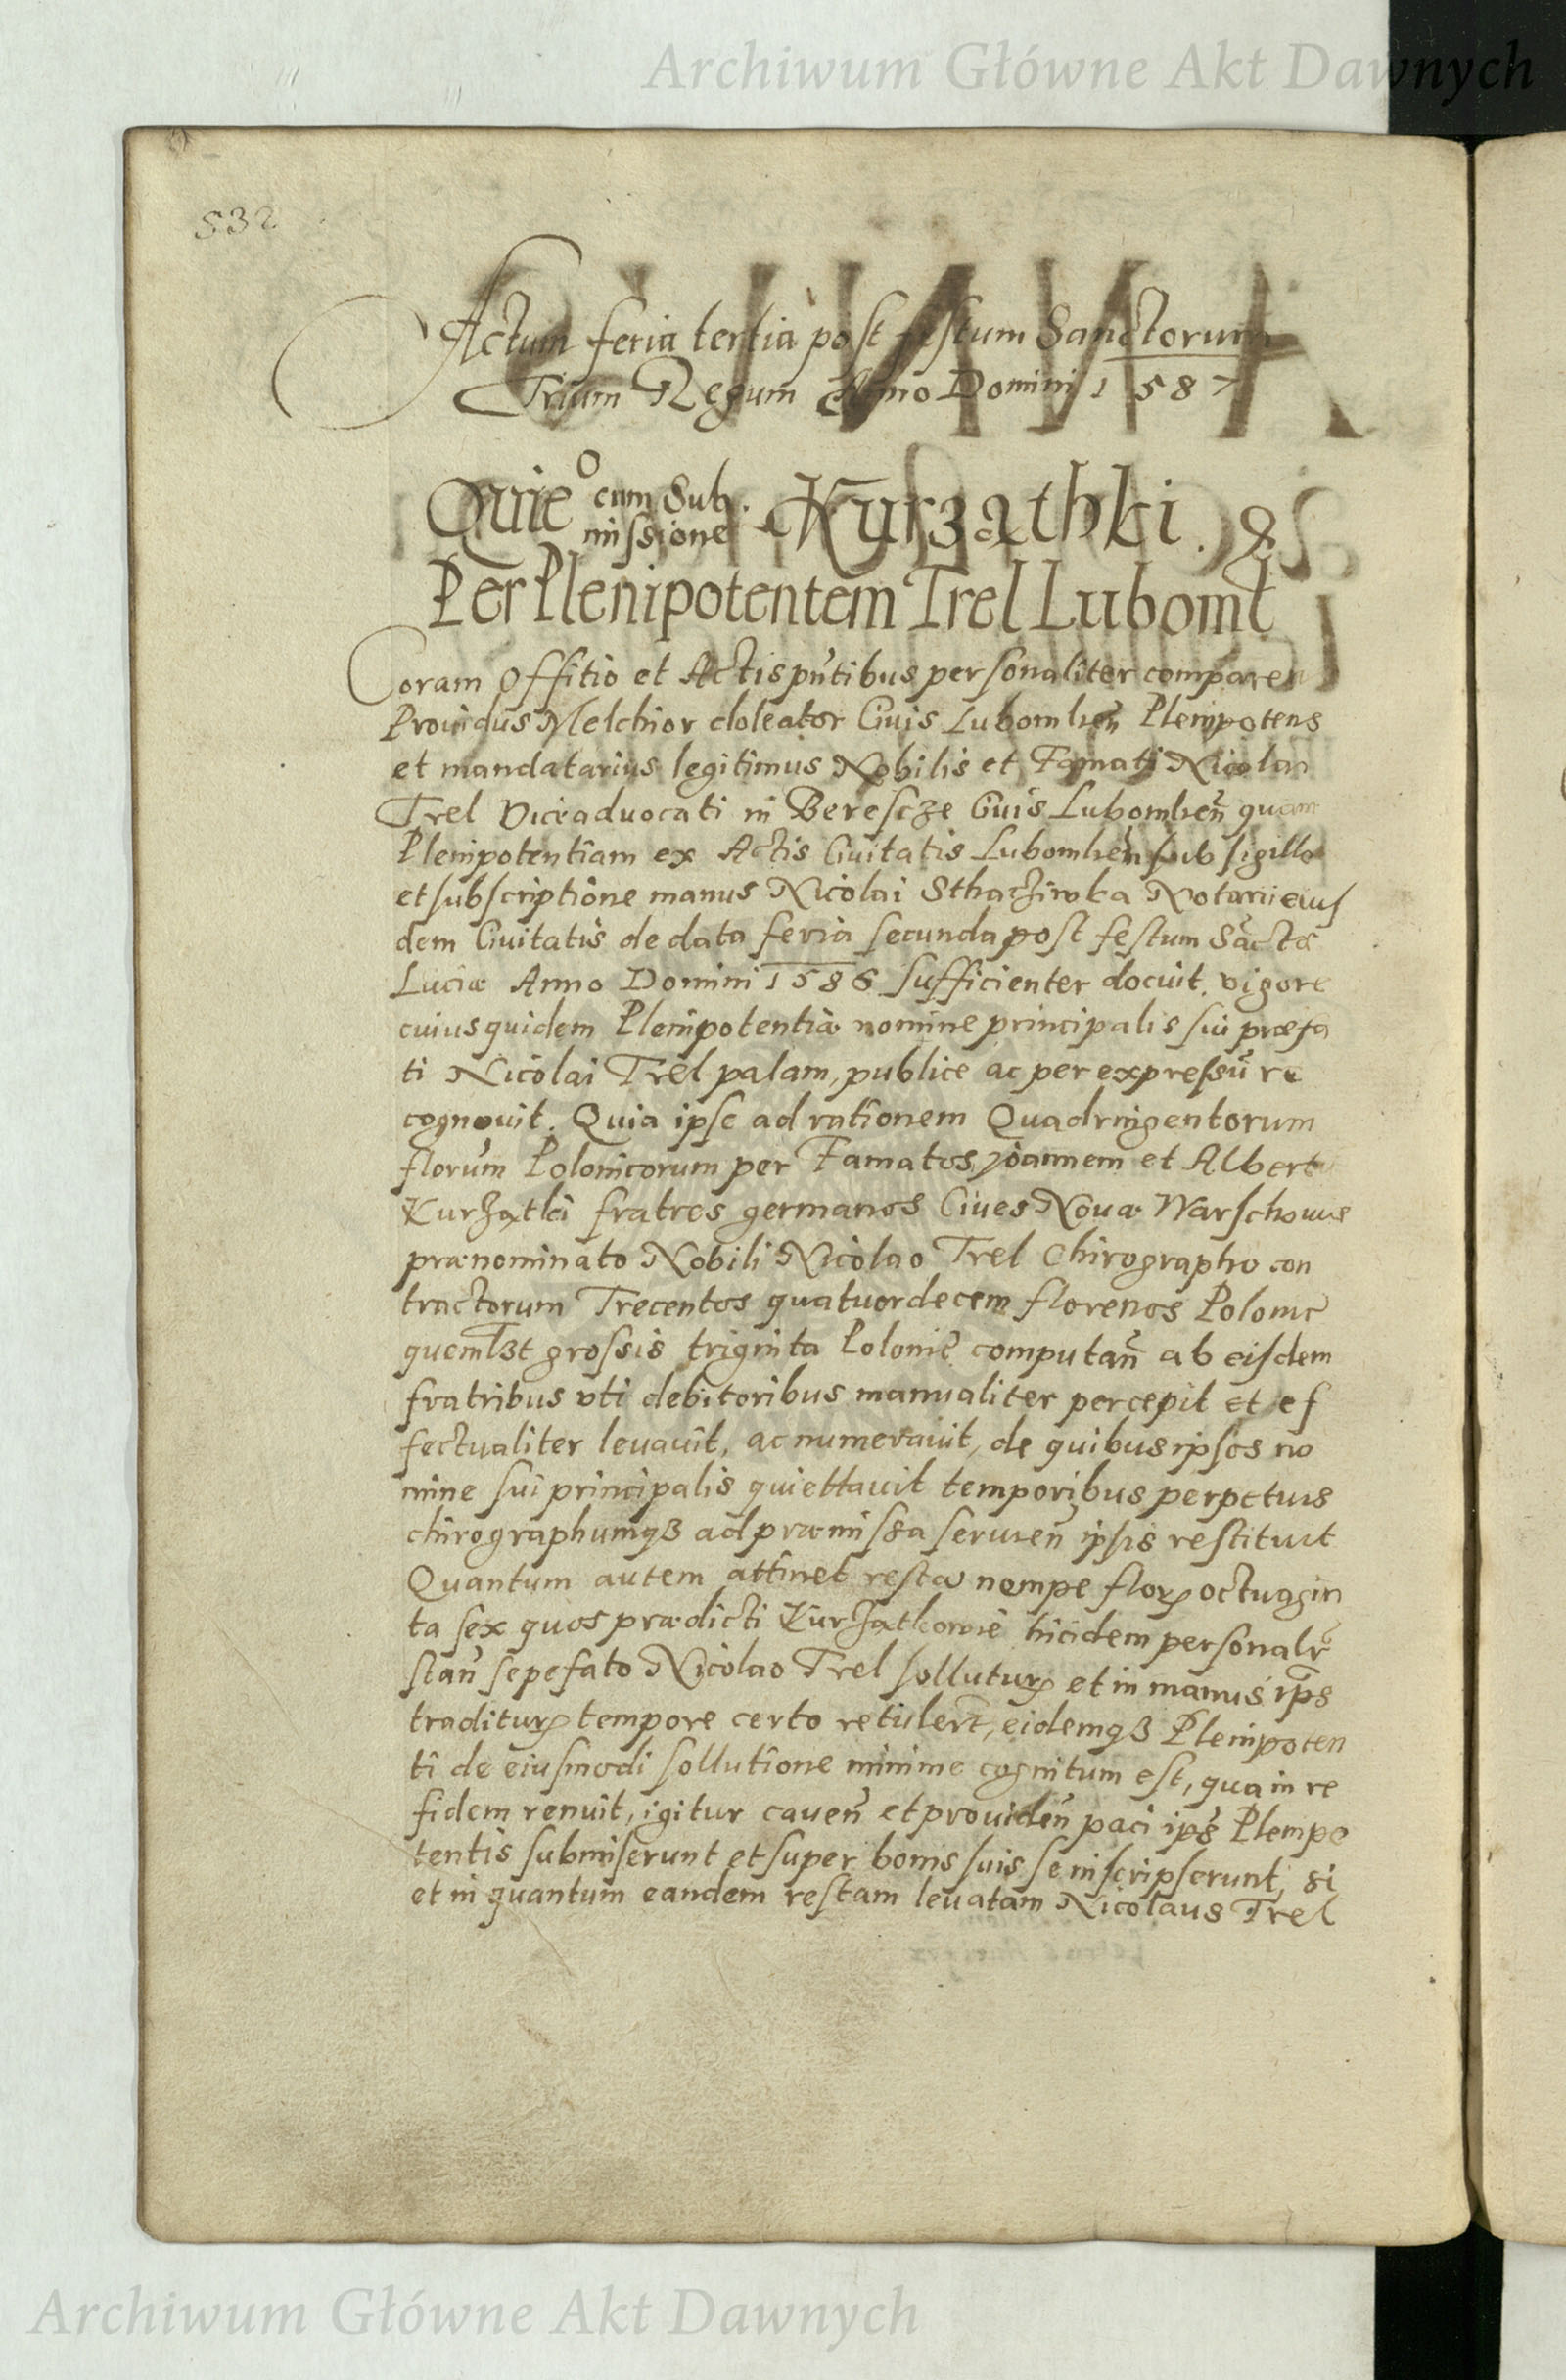 Archiwum Główne Akt Dawnych
532
Actum feria tertia post festum Sanctorum
Trium Regum Anno Domini 1587
Quie⁰ cum Sub.
missione Kurzathki.
Per Plenipotentem Trel Lubomł
Coram Offitio et Actis pn̄tibus personaliter comparen
Prouidus Melchior doleator Ciuis Lubomlien̄ Plenipotens
et mandatarius legitimus Nobilis et Famati Nicolai
Trel Viceaduocati in Beresczе Ciuis Lubomlien̄ quam
Plenipotentiam ex Actis Ciuitatis Lubomlien̄ sub sigillo
et subscriptione manus Nicolai Notarii eius
dem Ciuitatis de data feria secunda post festum Sāctæ
Luciæ Anno Domini 1586 sufficienter docuit. vigore
cuius quidem Plenipotentiæ nomine principalis sui præfa
ti Nicolai Trel palam, publice ac per expressū re
cognouit. Quia ipse ad rationem Quadringentorum
florum Polonicorum per Famatos Joannem et Albert
Kurzątki fratres germanos Ciues Nouæ Warschouiæ
prænominato Nobili Nicolao Trel Chirographo con
tractorum Trecentos quatuordecem florenos Polonic̄
quemlȝt grossis triginta Polonic̄ computan̄ ab eisdem
fratribus vti debitoribus manualiter percepit et ef
fectualiter leuauit, ac numerauit, de quibus ipsos no
mine sui principalis quiettauit temporibus perpetuis
chirographumqȝ ad præmissa seruien̄ ipsis restituit
Quantum autem attinet resta nempe floꝝ octuagin
ta sex quos prædicti Kurzątkowie hicidem personalr̄
stan̄ sepefato Nicolao Trel sollutuꝝ et in manus ip̄s
tradituꝝ tempore certo retulert̄, eidemqȝ Plenipoten
ti de eiusmodi sollutione minime cognitum est, qua in re
fidem renuit, igitur cauen̄ et prouiden̄ paci ips̄ Plenipo
tentis submiserunt et super bonis suis se inscripserunt, si
et in quantum eandem restam leuatam Nicolaus Trel
Archiwum Główne Akt Dawnych